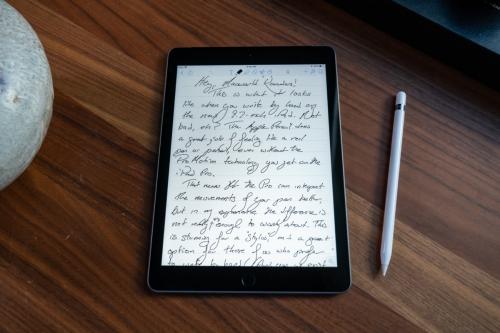 Hey, Macworld Readers!
This is what it looks
like when you write by hand on
the new 9.7-inch iPad. Not
bad, eh? The Apple Pencil does
a great job of feeling like a real
pen or pencil, even without the
ProMotion technology you get on the
iPad Pro.
That means the Pro can interpret
the movements of your pen better,
but in my experience the difference is
not really enough to worry about. This
is stunning for a "stylus," and a great
option for those of us who prefer
to write by hand!